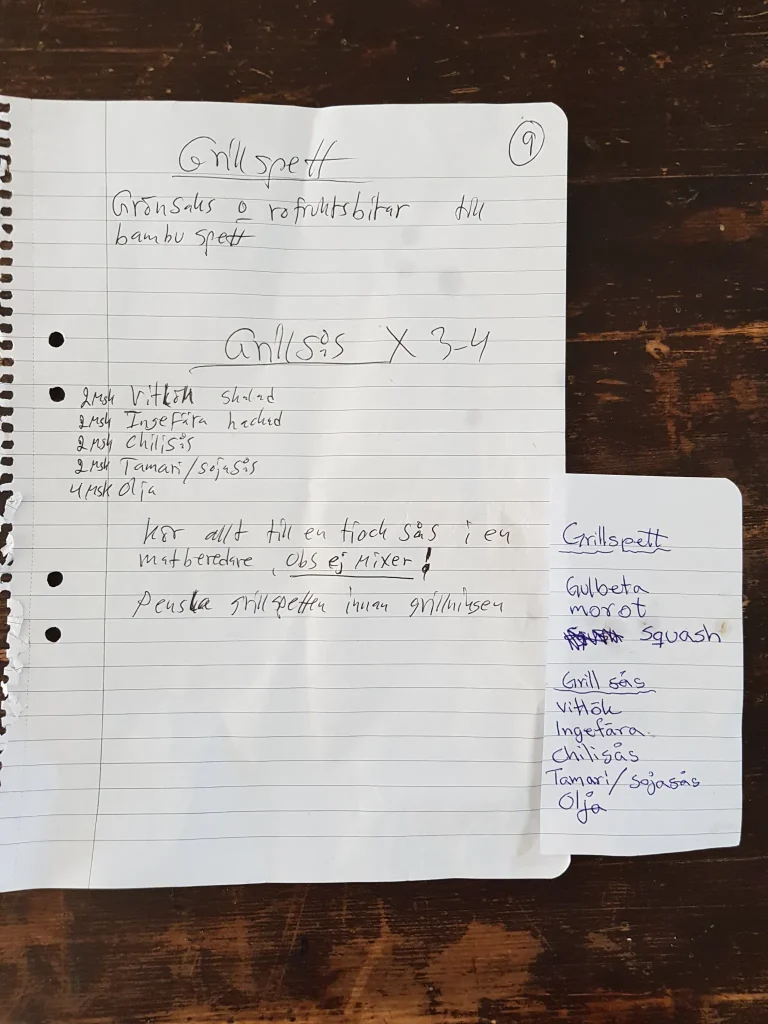 9
Grillspett
Grönsaks o rofruktsbitar till
bambu spett
Grillsås X 3-4
2 msk Vitlök skalad
2 msk Ingefära hackad
2 msk Chilisås
2 msk Tamari/sojasås
4 msk Olja
Kör allt till en tjock sås i en
matberedare, Obs ej Mixer!
Pensla grillspetten innan grillningen
Grillspett
Gulbeta
morot
Squash
Grill sås
Vitlök
Ingefära
Chilisås
Tamari/sojasås
Olja